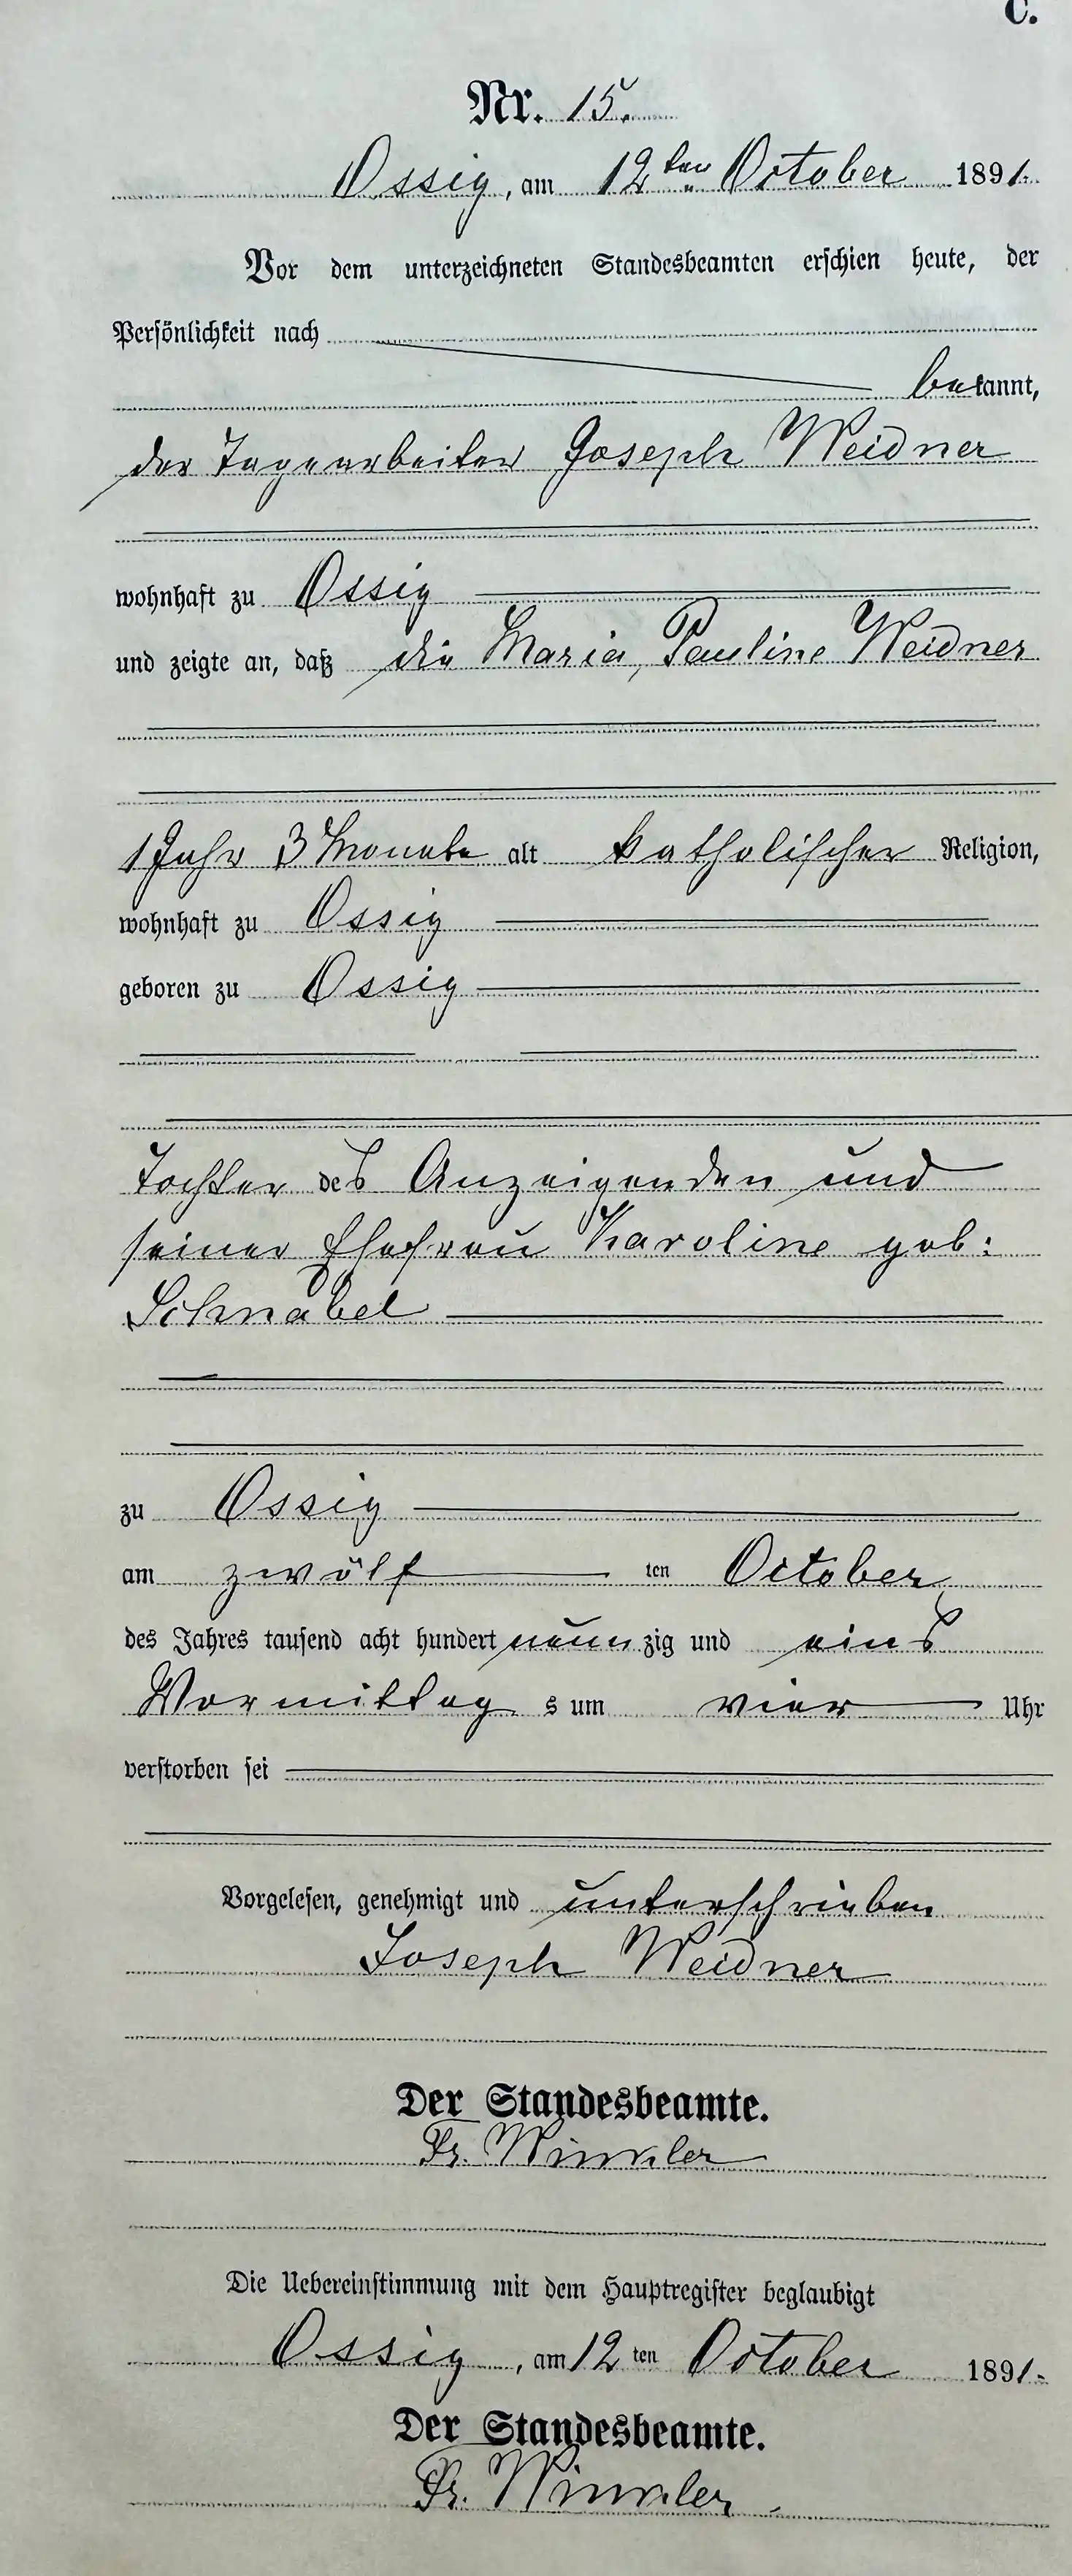 C.
Nr. 15.
Ossig, am 12ten October 1891.
Vor dem unterzeichneten Standesbeamten erschien heute, der
Persönlichkeit nach
bekannt,
der Tagearbeiter Joseph Weidner
wohnhaft zu Ossig
und zeigte an, daß die Maria, Pauline Weidner
1 Jahr 3 Monate alt katholischer Religion,
wohnhaft zu Ossig
geboren zu Ossig
Tochter des Anzeigenden und
seiner Ehefrau Karoline geb:
Schnabel
zu Ossig
am zwölf ten October
des Jahres tausend acht hundert neunzig und eins
Vormittags um vier Uhr
verstorben sei
Vorgelesen, genehmigt und unterschrieben
Joseph Weidner
Der Standesbeamte.
Fr. Winkler
Die Uebereinstimmung mit dem Hauptregister beglaubigt
Ossig, am 12ten October 1891.
Der Standesbeamte.
Fr. Winkler